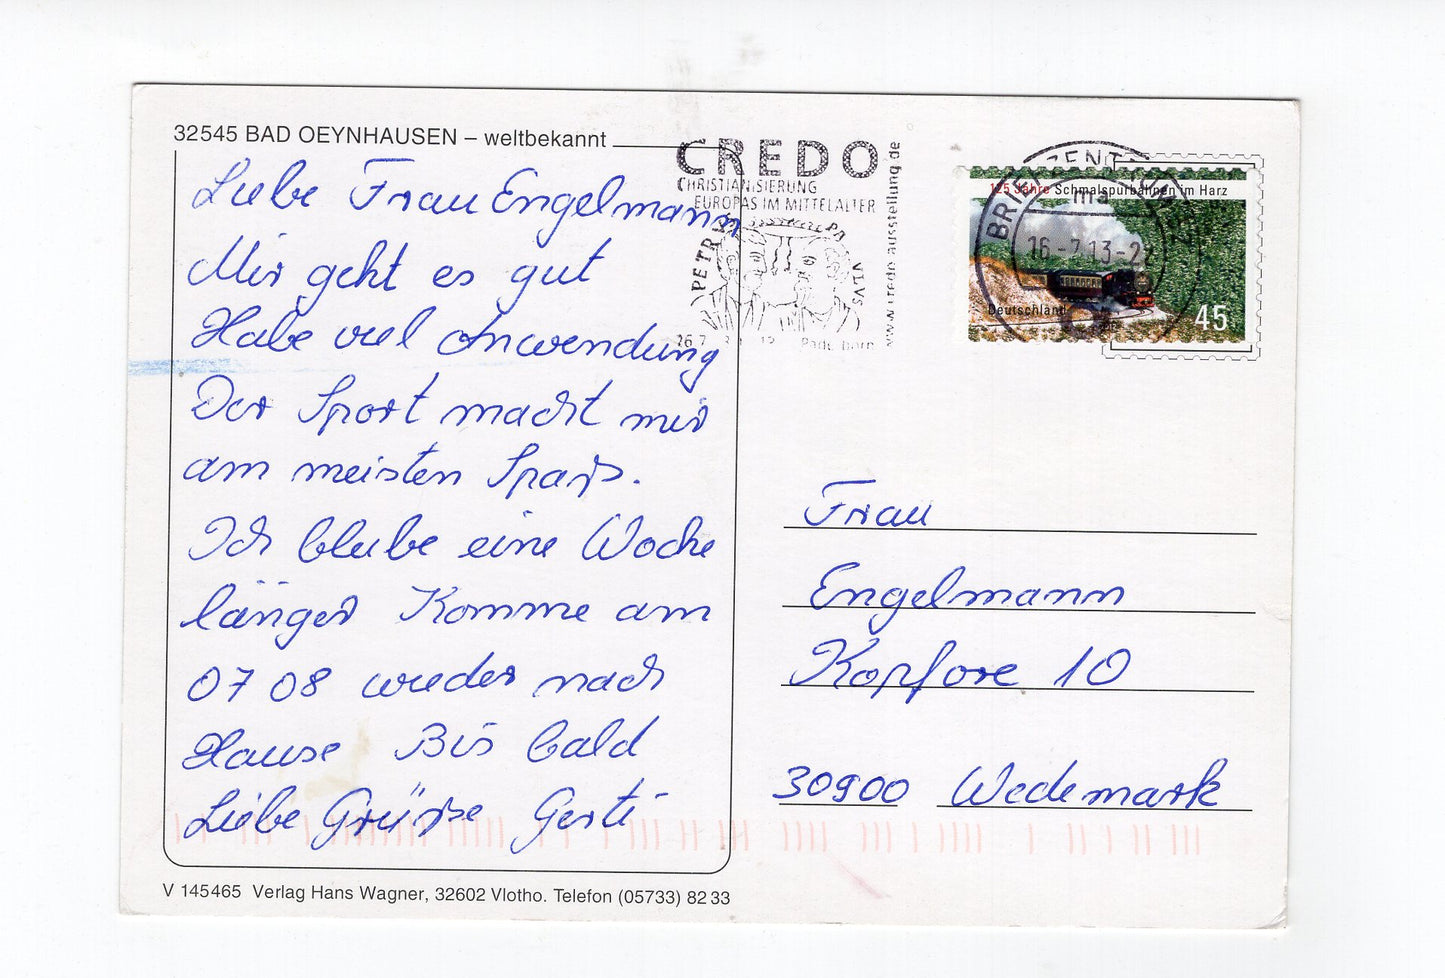 32545 BAD OEYNHAUSEN – weltbekannt
Liebe Frau Engelmann
Mir geht es gut
Habe viel Anwendung
Der Sport macht mir
am meisten Spaß.
Ich bleibe eine Woche
länger Komme am
07 08 wieder nach
Hause Bis bald
Liebe Grüße Gerti
V 145465 Verlag Hans Wagner, 32602 Vlotho. Telefon (05733) 82 33
CREDO
CHRISTIANISIERUNG
EUROPAS IM MITTELALTER
PETR
PA
VLVS
www.credo-ausstellung.de
26.7
Paderborn
BRIEFZENTRUM
16-7.13-22
125 Jahre Schmalspurbahnen im Harz
Deutschland
45
Frau
Engelmann
Kopfore 10
30900 Wedemark